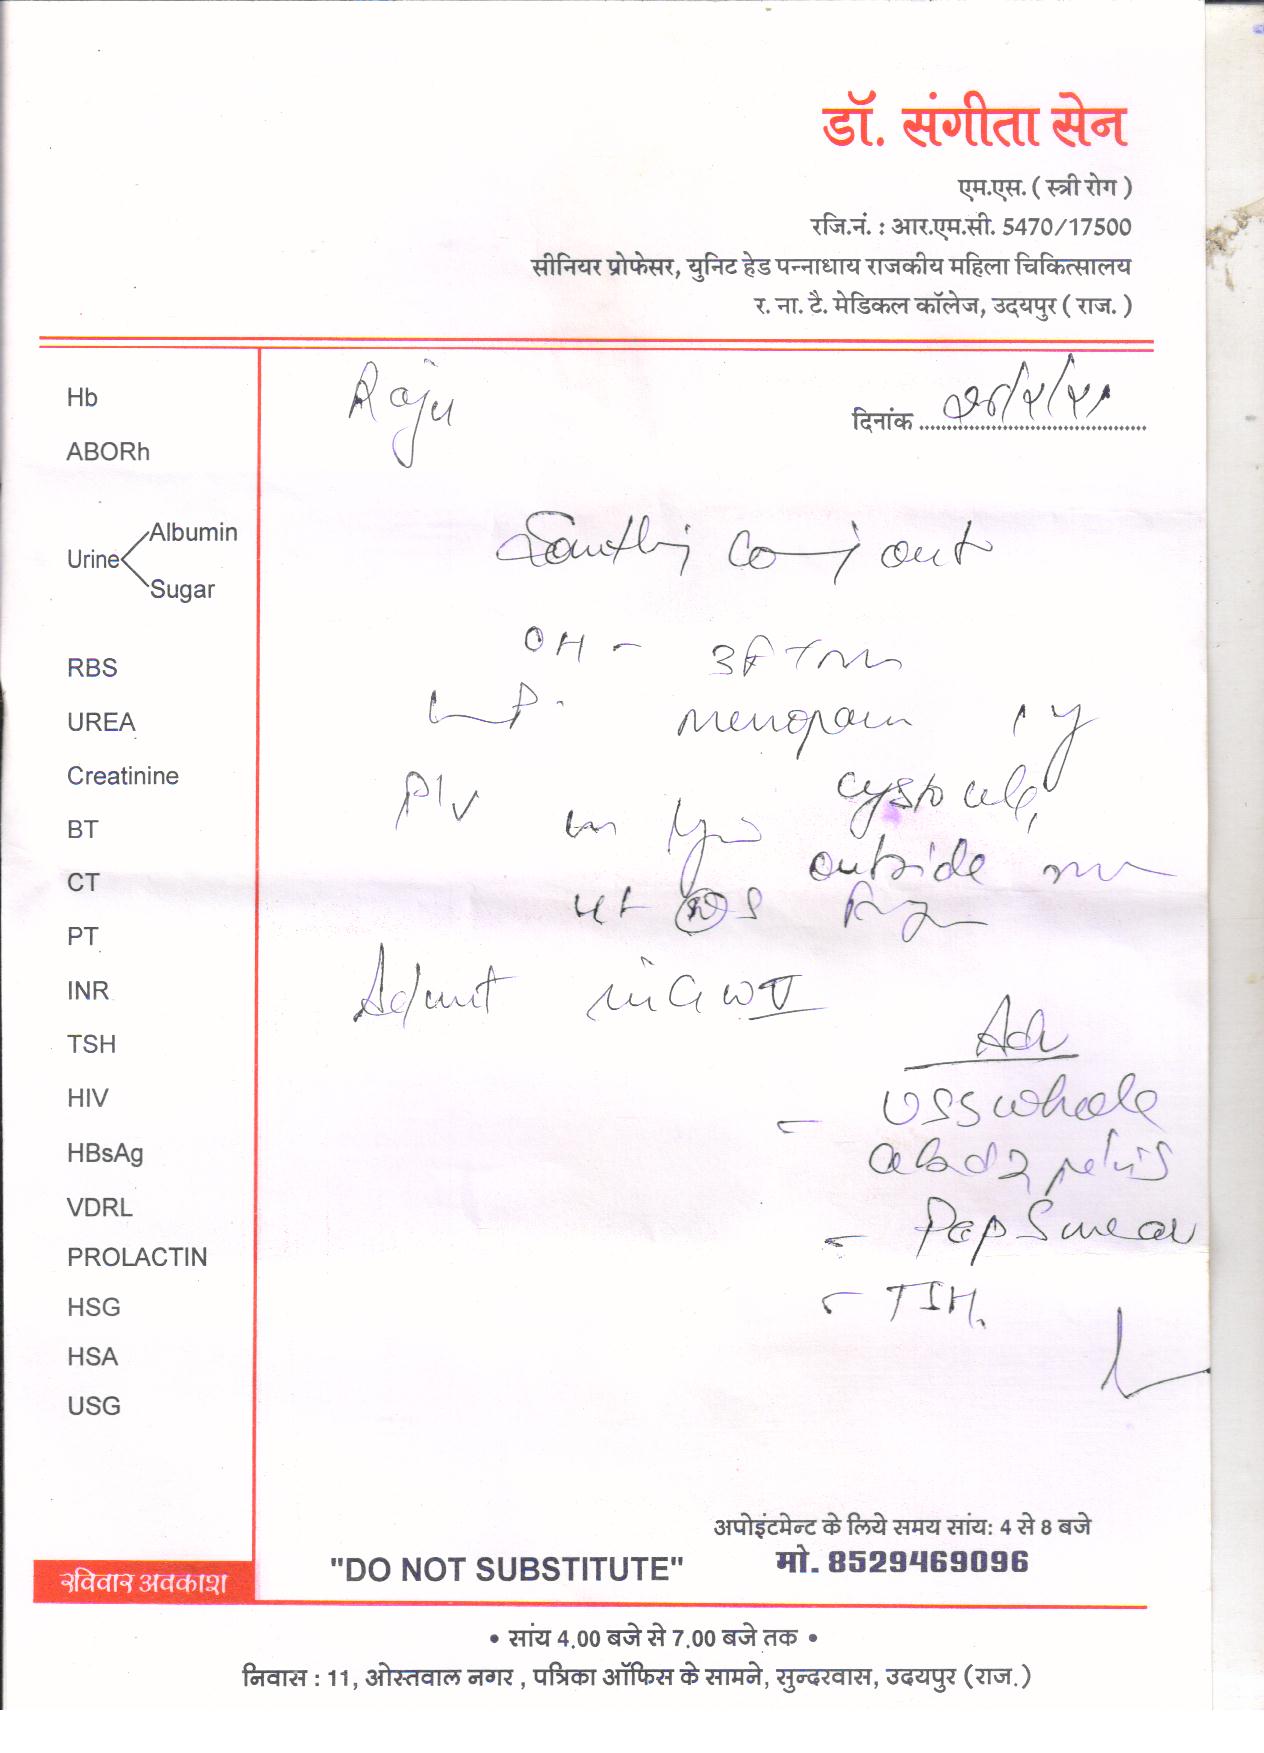 डॉ. संगीता सेन
एम.एस. ( स्त्री रोग )
रजि.नं. : आर.एम.सी. 5470/17500
सीनियर प्रोफेसर, युनिट हेड पन्नाधाय राजकीय महिला चिकित्सालय
र. ना. टै. मेडिकल कॉलेज, उदयपुर ( राज. )
Raju
दिनांक
Hb
ABORh
Urine
Albumin
Sugar
RBS
UREA
Creatinine
BT
CT
PT
INR
TSH
HIV
HBsAg
VDRL
PROLACTIN
HSG
HSA
USG
Something coming out
OH - 3FT
LMP.
P/V
cystocele,
outside
Admit in G W V
Adv
- USG whole
abd & pelvis
- Pap Smear
- TSH.
अपोइंटमेन्ट के लिये समय सांय: 4 से 8 बजे
"DO NOT SUBSTITUTE"
मो. 8529469096
रविवार अवकाश
• सांय 4.00 बजे से 7.00 बजे तक •
निवास : 11, ओस्तवाल नगर , पत्रिका ऑफिस के सामने, सुन्दरवास, उदयपुर (राज.)